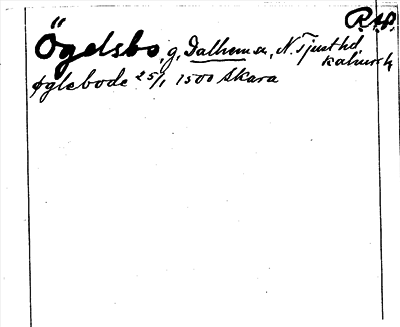 R.A.P.
Ögelsbo, g, Dalhem sn, N. Tjust hd,
Kalmar l.
øglebode 25/1 1500 Skara